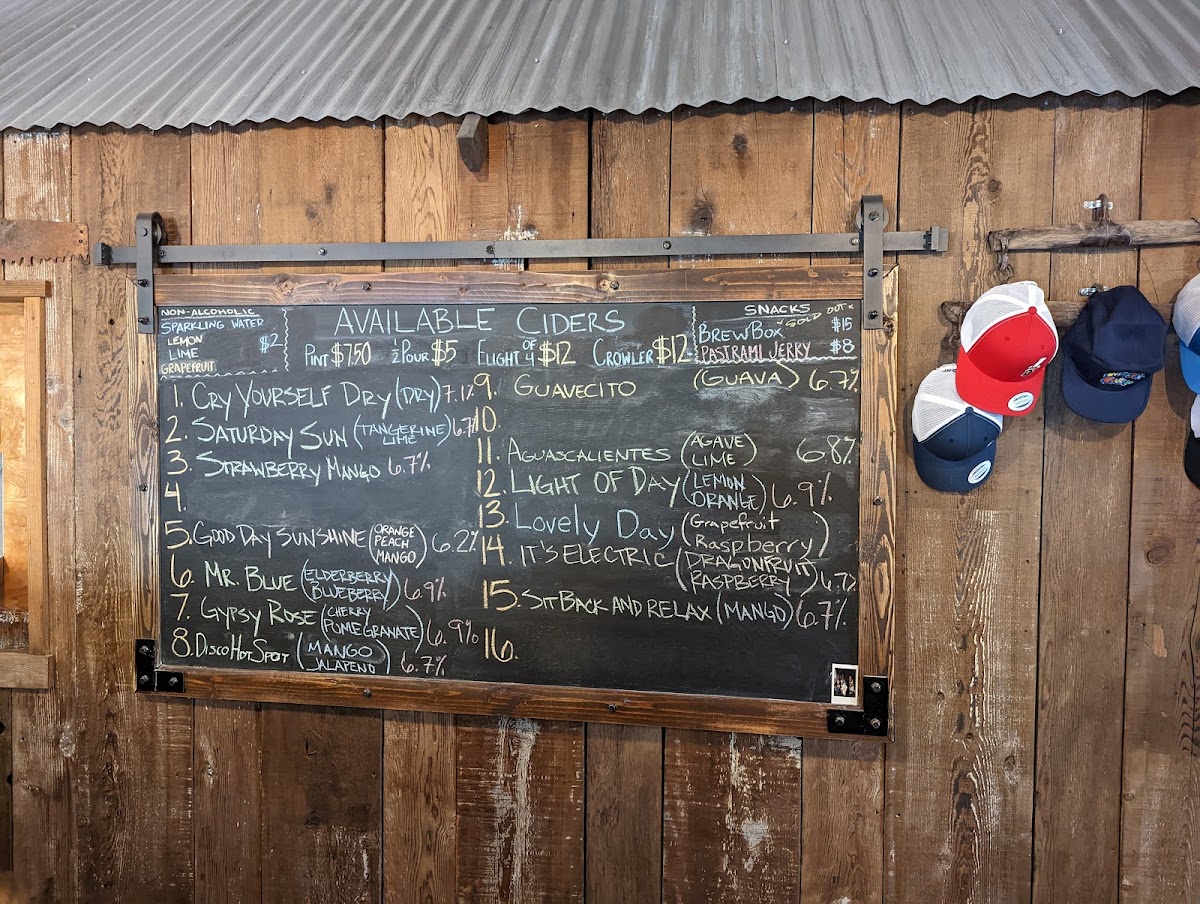 NON-ALCOHOLIC
SPARKLING WATER
LEMON
LIME
$2
GRAPEFRUIT
AVAILABLE CIDERS
PINT $7.50 ½ POUR $5 FLIGHT OF 4 $12 CROWLER $12
SNACKS
BREWBOX SOLD OUT $15
PASTRAMI JERKY $8
1. CRY YOURSELF DRY (DRY) 7.1%
2. SATURDAY SUN (TANGERINE LIME) 6.7%
3. STRAWBERRY MANGO 6.7%
4.
5. GOOD DAY SUNSHINE (ORANGE PEACH MANGO) 6.2%
6. MR. BLUE (ELDERBERRY BLUEBERRY) 6.9%
7. GYPSY ROSE (CHERRY POMEGRANATE) 6.9%
8. DISCO HOT SPOT (MANGO JALAPENO) 6.7%
9. GUAVECITO (GUAVA) 6.7%
10.
11. AGUASCALIENTES (AGAVE LIME) 6.8%
12. LIGHT OF DAY (LEMON ORANGE) 6.9%
13. Lovely Day (Grapefruit Raspberry)
14. IT'S ELECTRIC (DRAGONFRUIT RASPBERRY)
15. SIT BACK AND RELAX (MANGO) 6.7%
16.